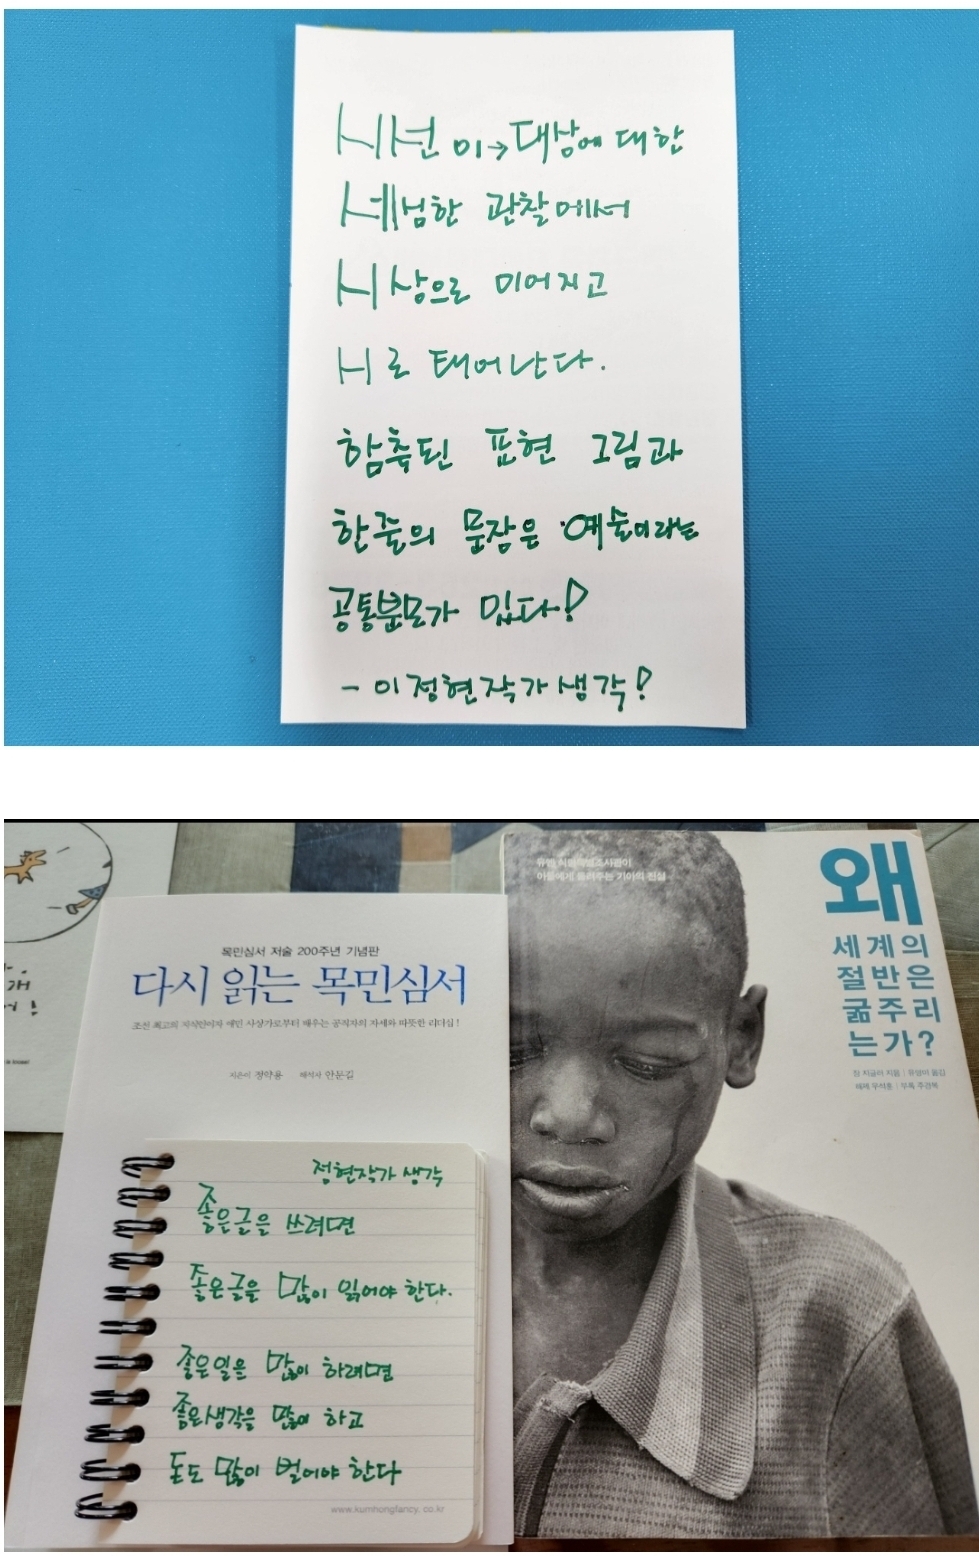 시선이→대상에 대한
세범한 관찰에서
시상으로 이어지고
시로 태어난다.
함축된 표현 그림과
한줄의 문장은 예술이라는
공통분모가 있다!
- 이정현작가 생각!
유엔 식량특별조사관이
아들에게 들려주는 기아의 진실
왜
세계의
절반은
굶주리
는가?
장 지글러 지음 | 유영미 옮김
해제 우석훈 | 부록 주경복
목민심서 저술 200주년 기념판
다시 읽는 목민심서
조선 최고의 지식인이자 애민 사상가로부터 배우는 공직자의 자세와 따뜻한 리더십!
지은이 정약용 해석사 안문길
정현작가 생각
좋은글을 쓰려면
좋은글을 많이 읽어야 한다.
좋은일을 많이 하려면
좋은생각을 많이 하고
돈도 많이 벌어야 한다
www.kumhongfancy.co.kr